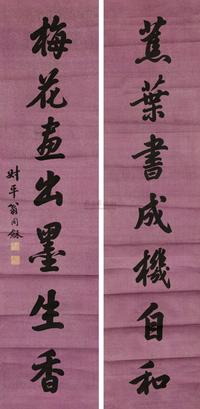 蕉葉書成機自和
梅花画出墨生香
叔平翁同龢